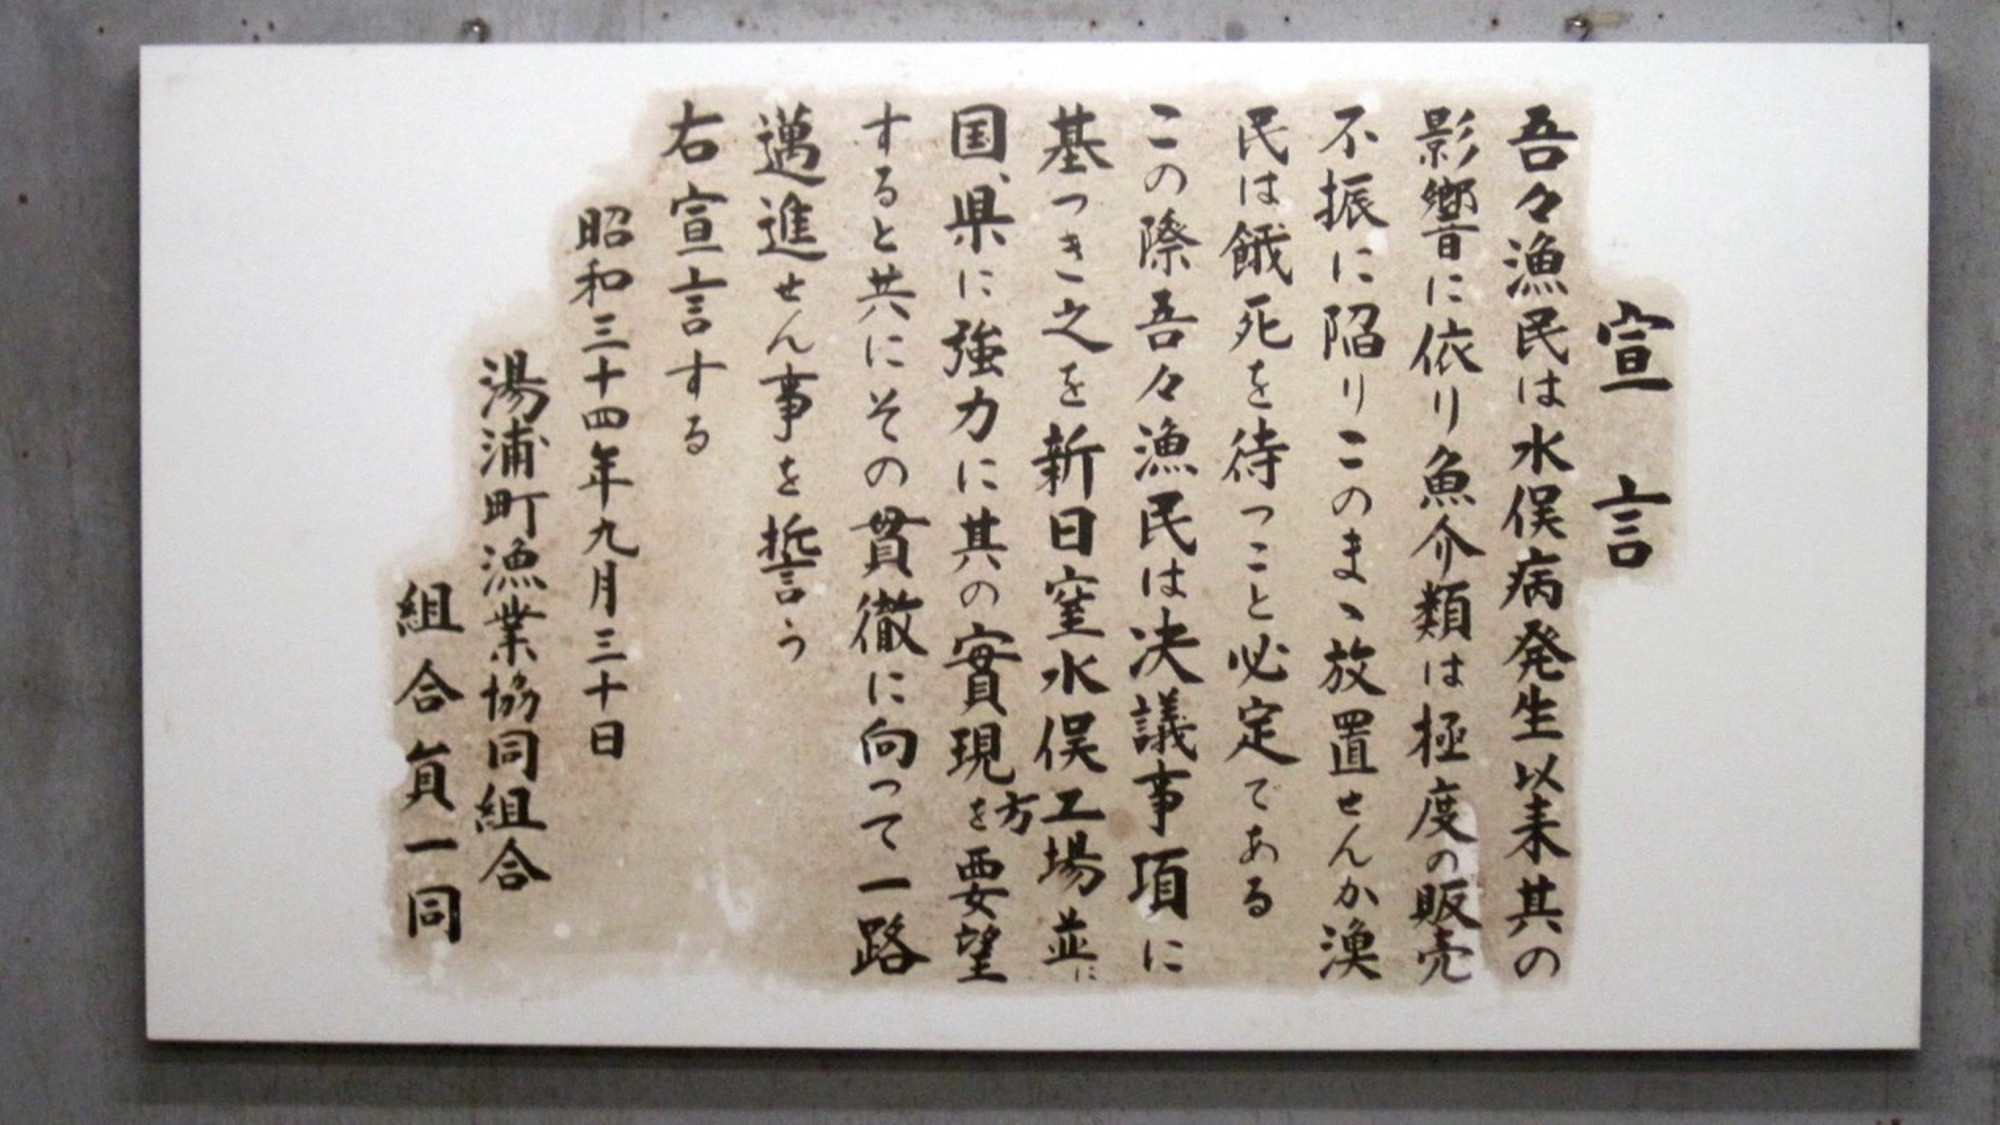 宣言
吾々漁民は水俣病発生以来其の
影響に依り魚介類は極度の販売
不振に陥りこのまゝ放置せんか漁
民は餓死を待つこと必定である
この際吾々漁民は決議事項に
基つき之を新日窒水俣工場並に
国、県に強力に其の實現方を要望
すると共にその貫徹に向って一路
邁進せん事を誓う
右宣言する
昭和三十四年九月三十日
湯浦町漁業協同組合
組合員一同